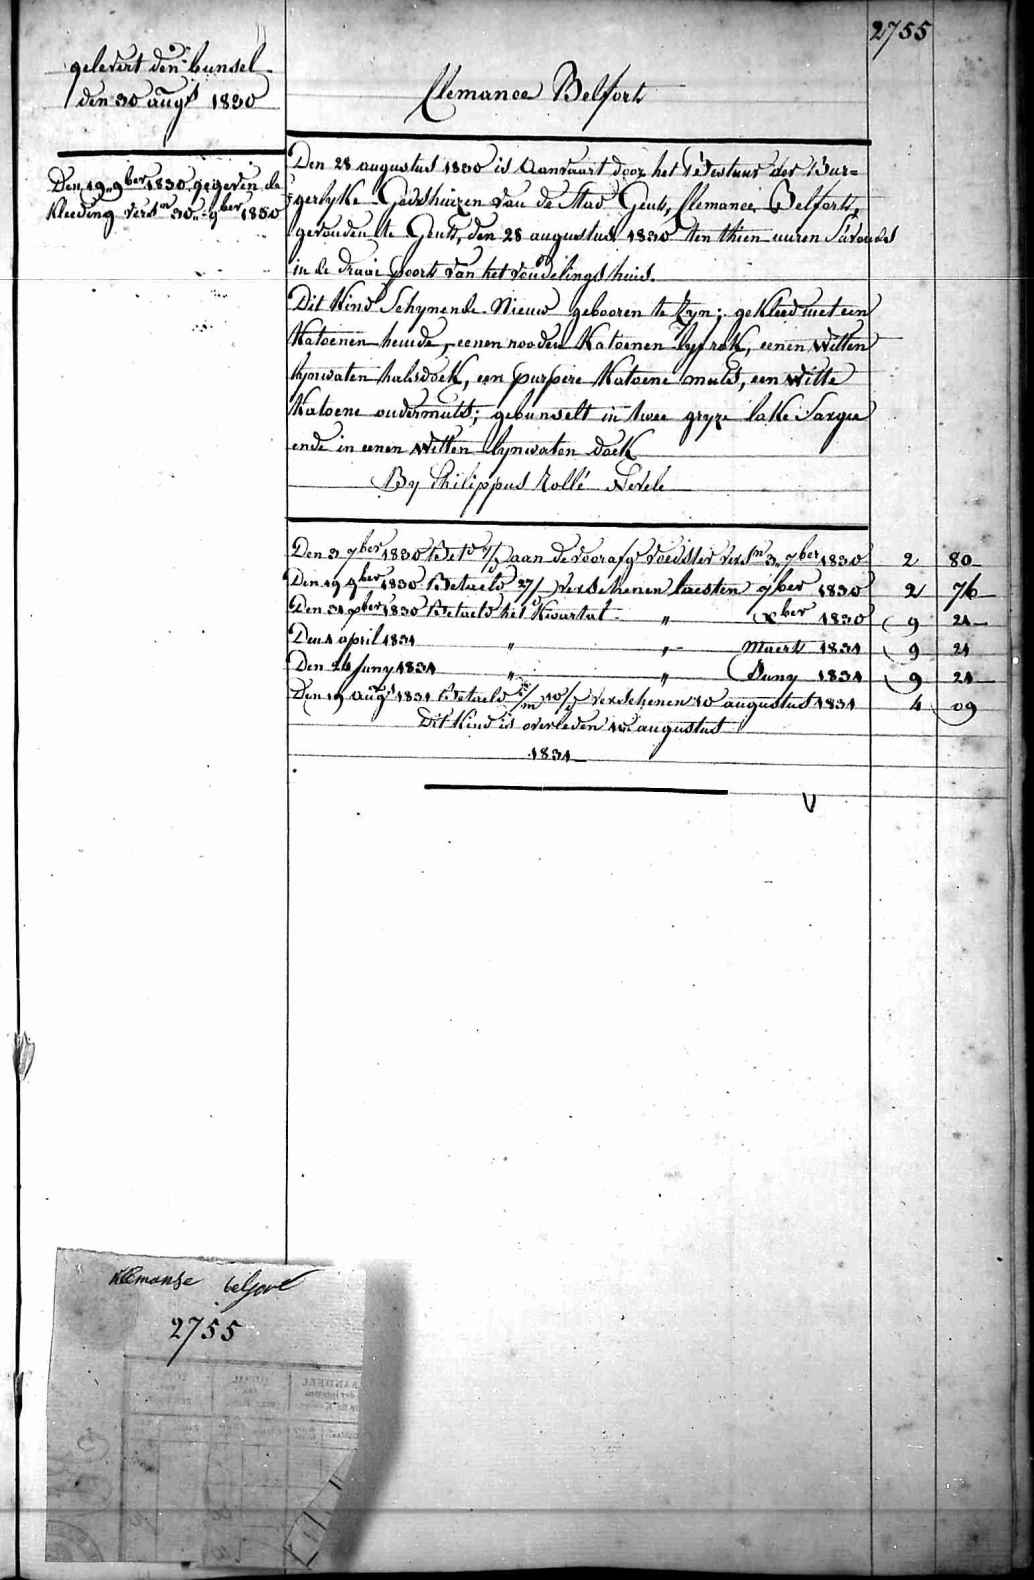 2755
gelevert den bunsel
den 30 augt 1830
Clemance Belfort
Den 19 9ber 1830 gegeven de
kleeding versn 30 9ber 1830
Den 28 augustus 1830 is Aanvaart door het Bestuur der Bur=
gerlyke Godshuizen van de Stad Gent, Clemance Belfort,
gevonden te Gent, den 28 augustus 1830 ten thien uuren S'avonds
in de Draai poort van het vondelings huis.
Dit Kind Schynende Nieuw gebooren te Zyn; gekleed met een
Katoenen hemde, eenen rooden Katoenen lyfrok, eenen witten
lynwaten halsdoek, een purpere Katoene muts, een witte
Katoene ondermuts; gebunselt in twee gryze lake Sargie
ende in eenen witten lynwaten doek
By Philippus Rollé Nevele
Den 3 7ber 1830 betd aan de voorafge voedster versn 3 7ber 1830 2 80
Den 19 9ber 1830 Betaeld 27/ verschenen laesten 7ber 1830 2 76
Den 31 xber 1830 betaeld het Kwartal " xber 1830 9 21
Den 1 april 1831 " " Maert 1831 9 21
Den 24 Juny 1831 " " Juny 1831 9 21
Den 19 augt 1831 betaeld 1/m 10/d verschenen 10 augustus 1831 4 09
Dit Kind is overleden 10 augustus
1831
Klemanse belfort
2755